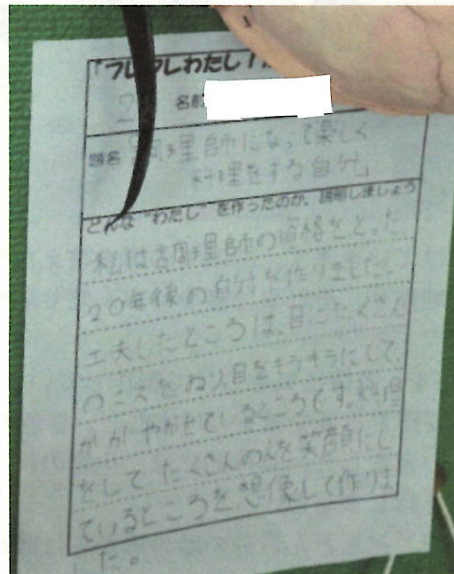 「フレフレわたし！
2 名前
題名 調理師になって楽しく
料理をする自分」
どんな“わたし”を作ったのか、説明しましょう
私は調理師の資格をとった
20年後の自分を作りました。
工夫したところは、目にたくさん
のニスをぬり目をキラキラにして
かがやかせているところです。料理
をして たくさんの人を笑顔にし
ているところを想像して作りま
した。